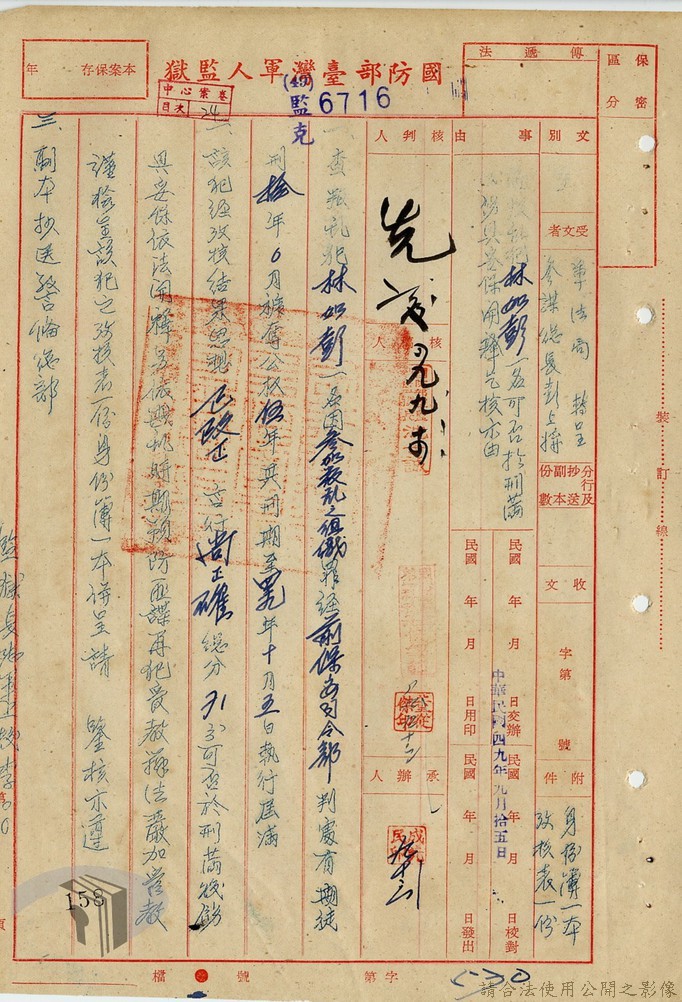 國防部臺灣軍人監獄
本案保存 年
中心案卷
目次 24
(49)監克 6716
傳遞法
保密區分
文別
受文者
軍法局 轉呈
參謀總長彭上將
分行及抄送副本份數
收文 字第 號
附件
身份簿一本
攷核表一份
事由
林如彭一名可否於刑滿
具妥保開釋乞核示由
民國 年 月 日交辦
民國 年 月 日校對
中華民國四九年九月拾五日
民國 年 月 日用印
民國 年 月 日發出
核判人
先發
核人
承辦人
一、查叛亂犯林如彭一名因參加叛亂之組織罪經前保安司令部判處有期徒
刑拾年 月褫奪公權伍年其刑期至四九年十月五日執行屆滿
二、該犯經攷核結果思想已改正言行尚正確總分71分可否於刑滿後飭
具妥保依法開釋 戡亂時期預防匪諜再犯管教辦法嚴加管教
謹檢呈該犯之攷核表一份身份簿一本併呈請 鑒核示遵
三、副本抄送警備總部
裝訂線
158
檔 號 字第
530
請合法使用公開之影像